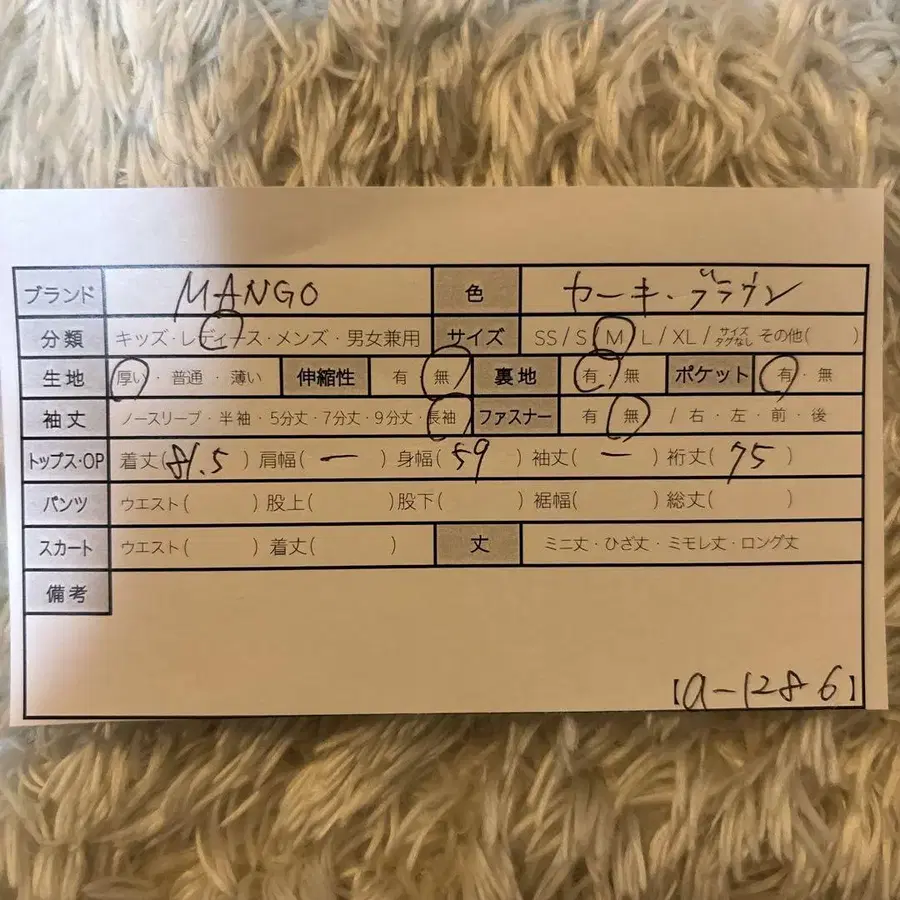 ブランド MANGO 色 カーキ・ブラウン
分類 キッズ・レディース・メンズ・男女兼用 サイズ SS / S / M / L / XL / サイズタグなし その他( )
生地 厚い・普通・薄い 伸縮性 有・無 裏地 有・無 ポケット 有・無
袖丈 ノースリーブ・半袖・5分丈・7分丈・9分丈・長袖 ファスナー 有・無 / 右・左・前・後
トップス・OP 着丈(81.5) 肩幅(ー) 身幅(59) 袖丈(ー) 裄丈(75)
パンツ ウエスト( ) 股上( ) 股下( ) 裾幅( ) 総丈( )
スカート ウエスト( ) 着丈( ) 丈 ミニ丈・ひざ丈・ミモレ丈・ロング丈
備考
【a-1286】